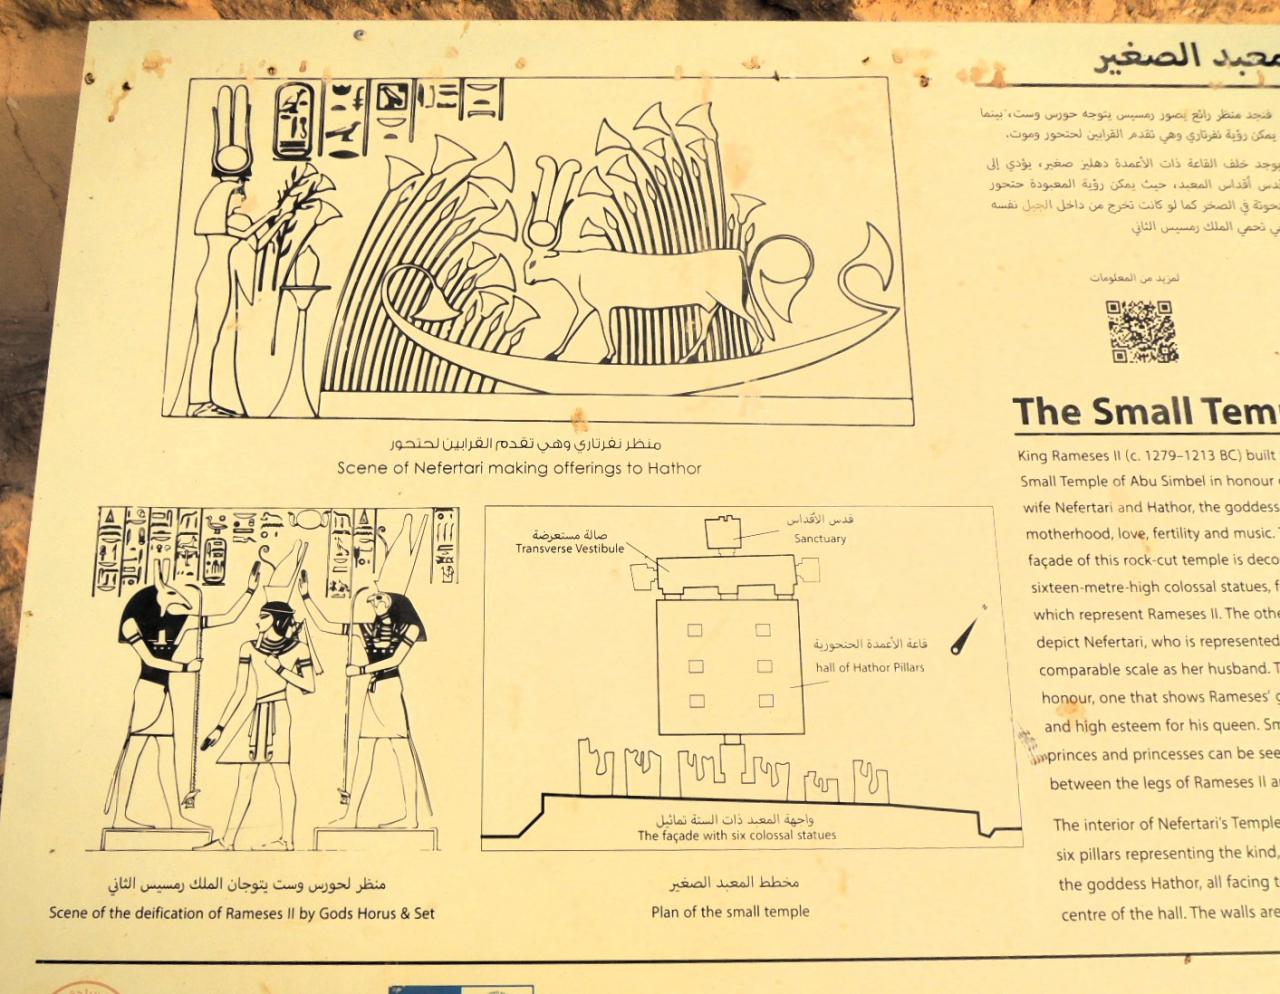 معبد الصغير
فنجد منظر رائع يصور رمسيس يتوجه حورس وست، بينما
يمكن رؤية نفرتاري وهي تقدم القرابين لحتحور وموت.
يوجد خلف القاعة ذات الأعمدة دهليز صغير، يؤدي إلى
قدس أقداس المعبد، حيث يمكن رؤية المعبودة حتحور
في الصخر كما لو كانت تخرج من داخل الجبل نفسه
تحمي الملك رمسيس الثاني
لمزيد من المعلومات
منظر نفرتاري وهي تقدم القرابين لحتحور
Scene of Nefertari making offerings to Hathor
منظر لحورس وست يتوجان الملك رمسيس الثاني
Scene of the deification of Rameses II by Gods Horus & Set
قدس الأقداس
Sanctuary
صالة مستعرضة
Transverse Vestibule
قاعة الأعمدة الحتحورية
hall of Hathor Pillars
واجهة المعبد ذات الستة تماثيل
The façade with six colossal statues
مخطط المعبد الصغير
Plan of the small temple
The Small Tem
King Rameses II (c. 1279–1213 BC) built
Small Temple of Abu Simbel in honour
wife Nefertari and Hathor, the goddess
motherhood, love, fertility and music.
façade of this rock-cut temple is deco
sixteen-metre-high colossal statues, f
which represent Rameses II. The othe
depict Nefertari, who is represented
comparable scale as her husband. T
honour, one that shows Rameses' g
and high esteem for his queen. Sm
princes and princesses can be see
between the legs of Rameses II a
The interior of Nefertari's Temple
six pillars representing the kind,
the goddess Hathor, all facing t
centre of the hall. The walls are